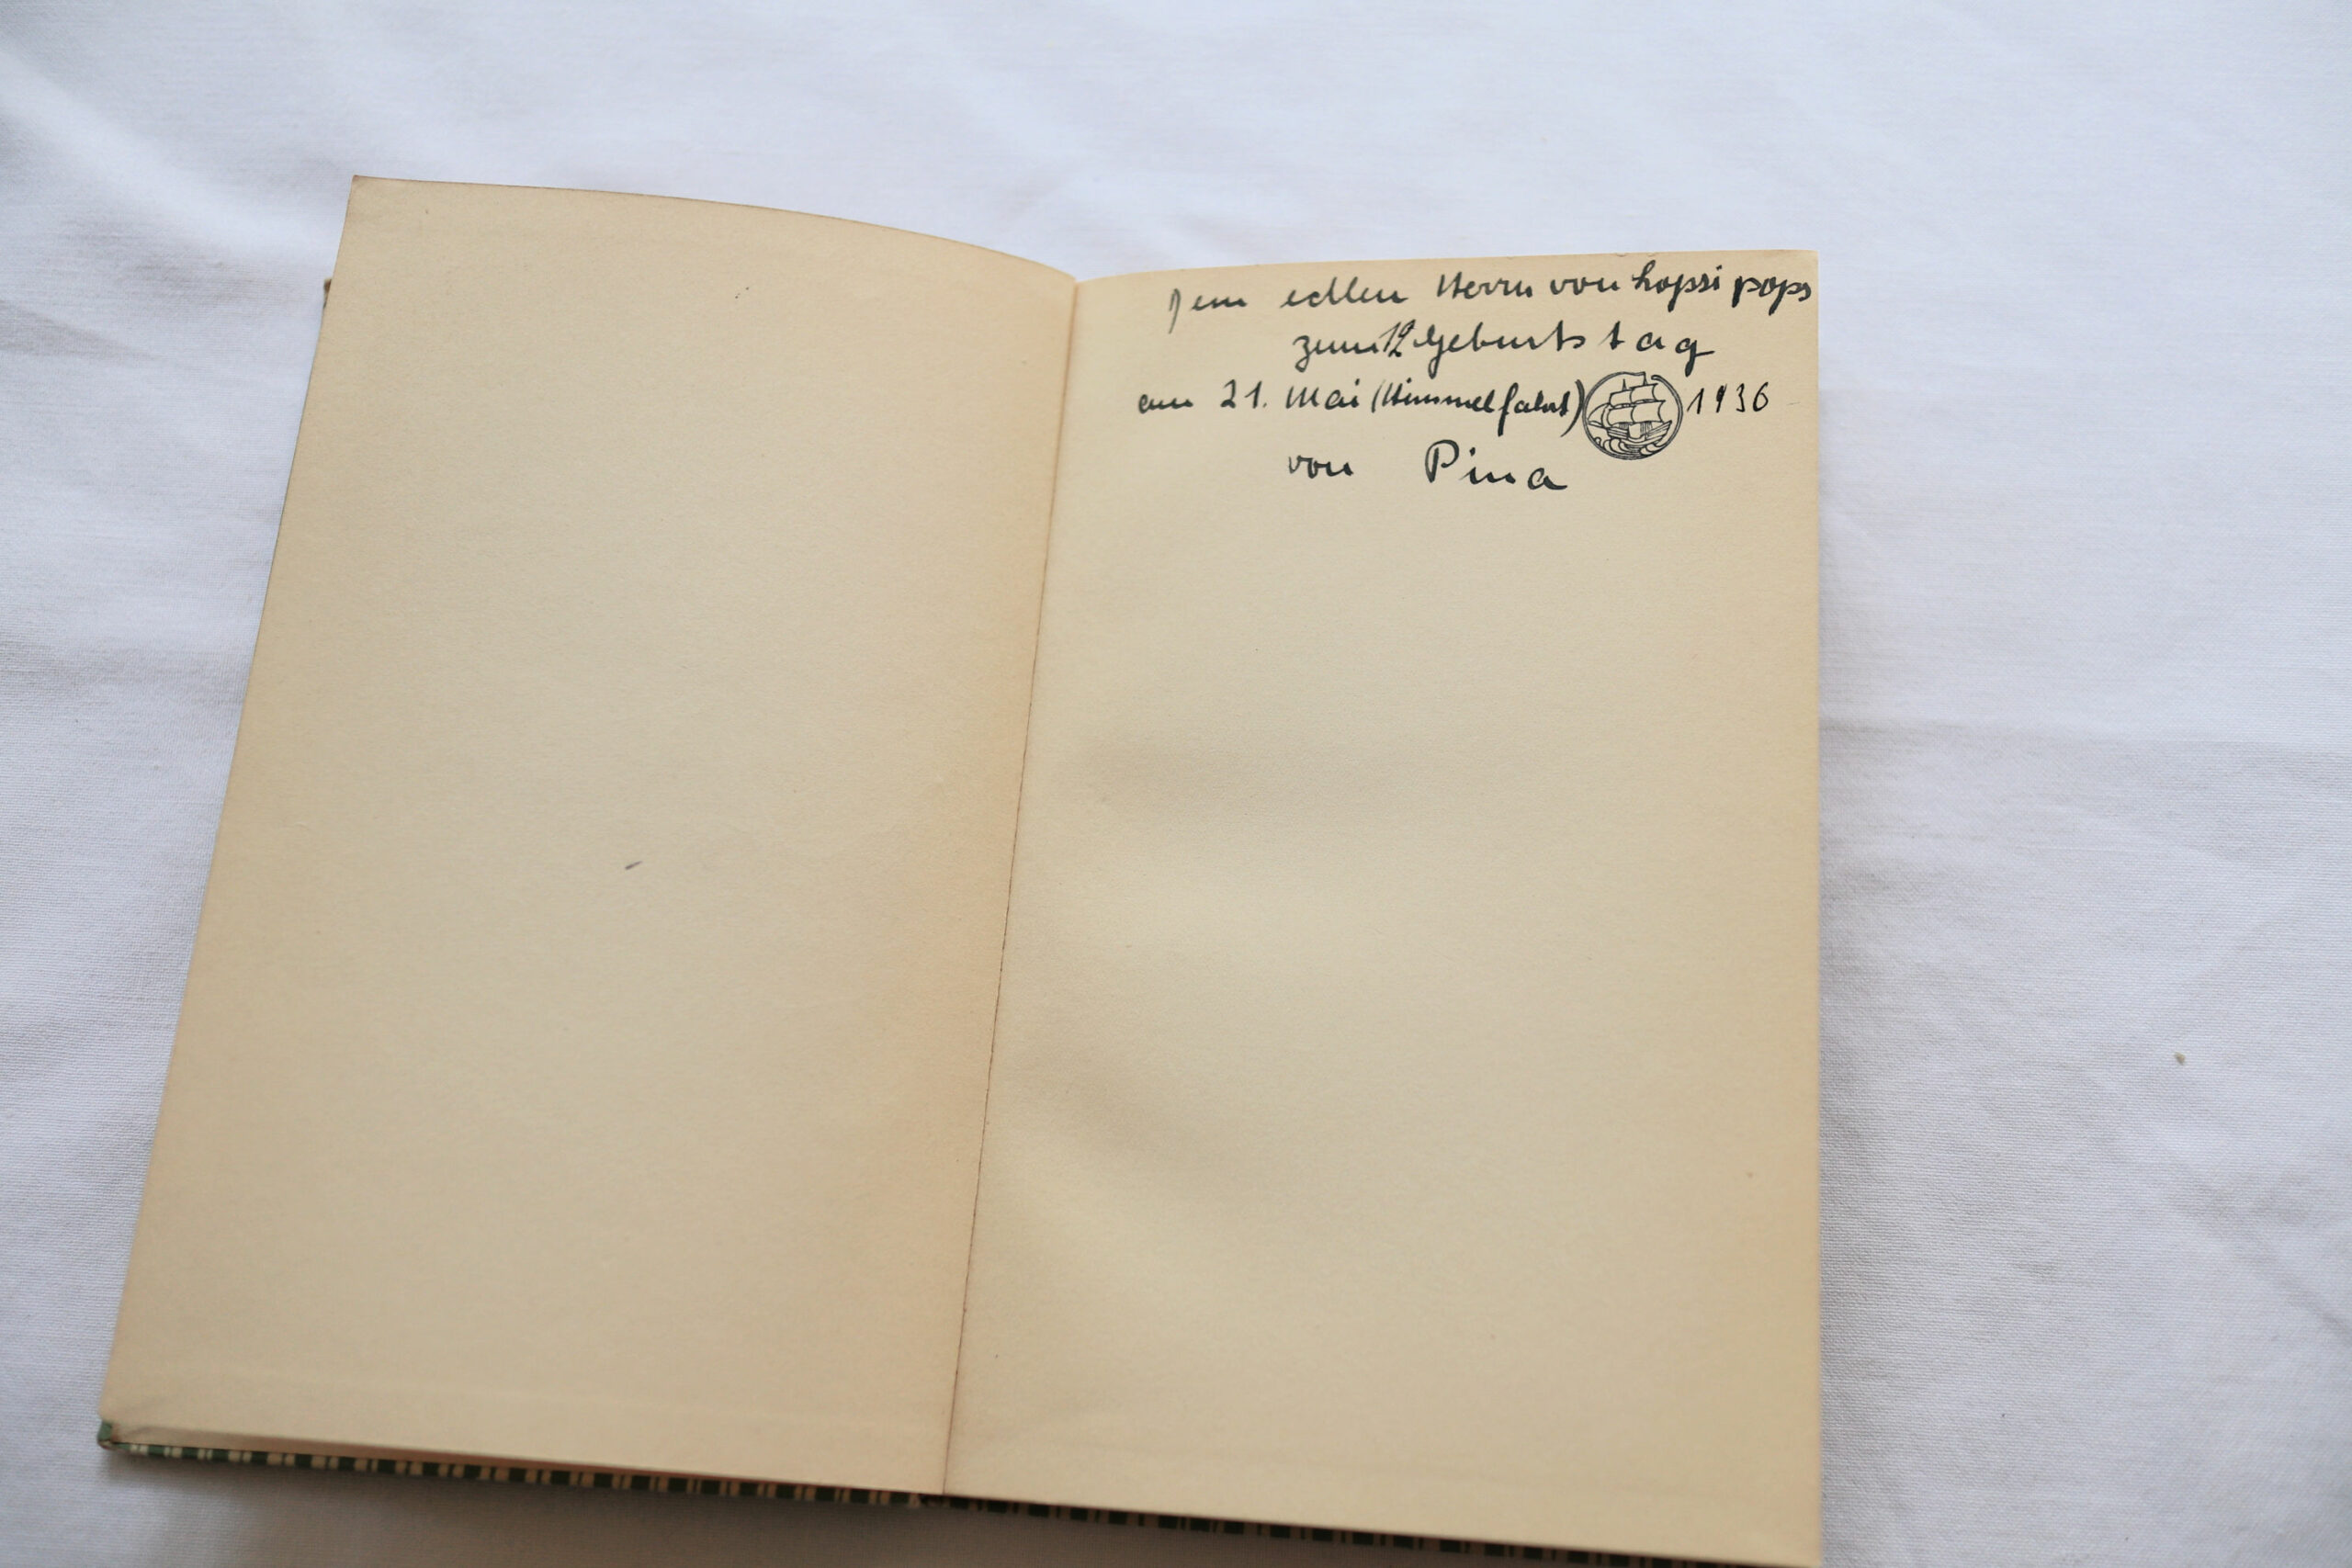 Dem edlen Herrn von hopsi pops
zum 12 Geburtstag
am 21. Mai (Himmelfahrt) 1936
von Pina